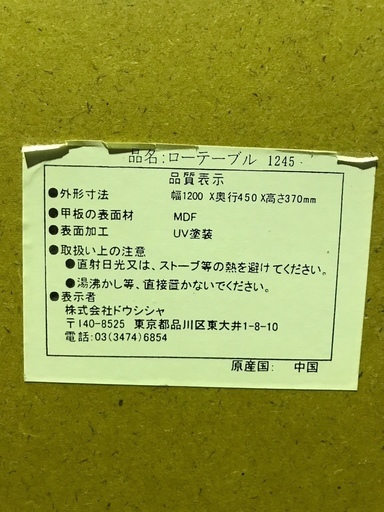 品名:ローテーブル 1245
品質表示
●外形寸法 幅1200 X奥行450 X高さ370mm
●甲板の表面材 MDF
●表面加工 UV塗装
●取扱い上の注意
●直射日光又は、ストーブ等の熱を避けてください。
●湯沸かし等、直接置かないでください。
●表示者
株式会社ドウシシャ
〒140-8525 東京都品川区東大井1-8-10
電話:03(3474)6854
原産国: 中国